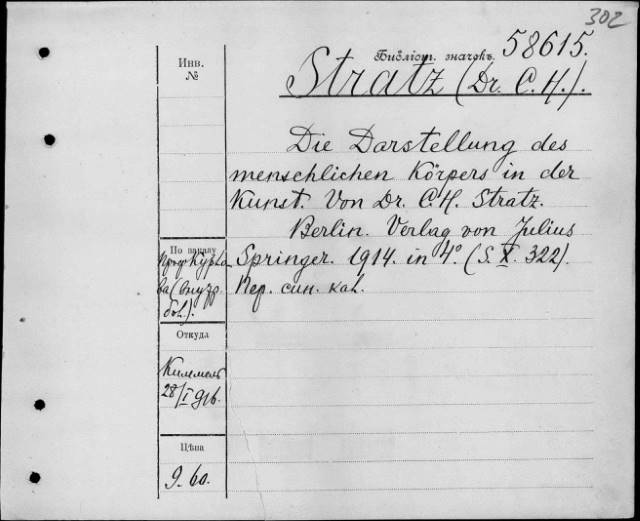 302
Инв.
№
Библіот. значокъ 58615.
Stratz (Dr. C. H.).
Die Darstellung des
menschlichen Körpers in der
Kunst. Von Dr. C H. Stratz.
Berlin. Verlag von Julius
Springer. 1914. in 4° (S. X. 322).
Пер. син. кал.
По заказу
Проф Курло-
ва
Откуда
Киммель
28/I 916.
Цѣна
9. 60.